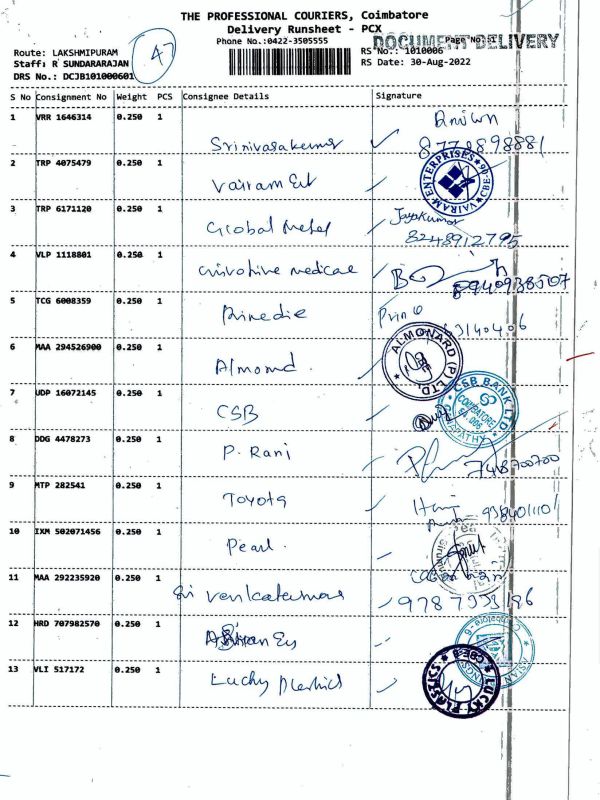 THE PROFESSIONAL COURIERS, Coimbatore
Delivery Runsheet - PCX
Phone No.:0422-3505555
DOCUMENT DELIVERY
Page No:51
Route: LAKSHMIPURAM
47
RS No.: 1010006
Staff: R SUNDARARAJAN
RS Date: 30-Aug-2022
DRS No.: DCJB101000601
S No Consignment No Weight PCS Consignee Details Signature
1 VRR 1646314 0.250 1 Srinivasakumar
2 TRP 4075479 0.250 1 Vairam Ent
VAIRAM ENTERPRISES CBE
3 TRP 6171120 0.250 1 Global Metal Jayakumar
8248912795
4 VLP 1118801 0.250 1 medical
8940938507
5 TCG 6008359 0.250 1
6 MAA 294526900 0.250 1 Almond
ALMONARD (P) LTD
7 UDP 16072145 0.250 1 CSB
CSB BANK LTD COIMBATORE GANAPATHY
8 DDG 4478273 0.250 1 P. Rani 748700700
9 MTP 282541 0.250 1 Toyota 9384011101
10 IXM 502071456 0.250 1 Pearl
11 MAA 292235920 0.250 1 Sri
12 HRD 707982570 0.250 1
ASIAN
13 VLI 517172 0.250 1 Lucky plastics
LUCKY PLASTICS CBE